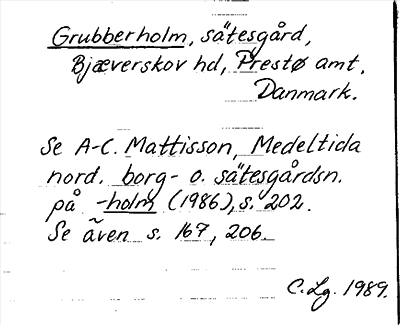 Grubberholm, sätesgård,
Bjæverskov hd, Præstø amt,
Danmark.
Se A-C. Mattisson, Medeltida
nord. borg- o. sätesgårdsn.
på -holm (1986), s. 202.
Se även s. 167, 206.
C. Lg. 1989.